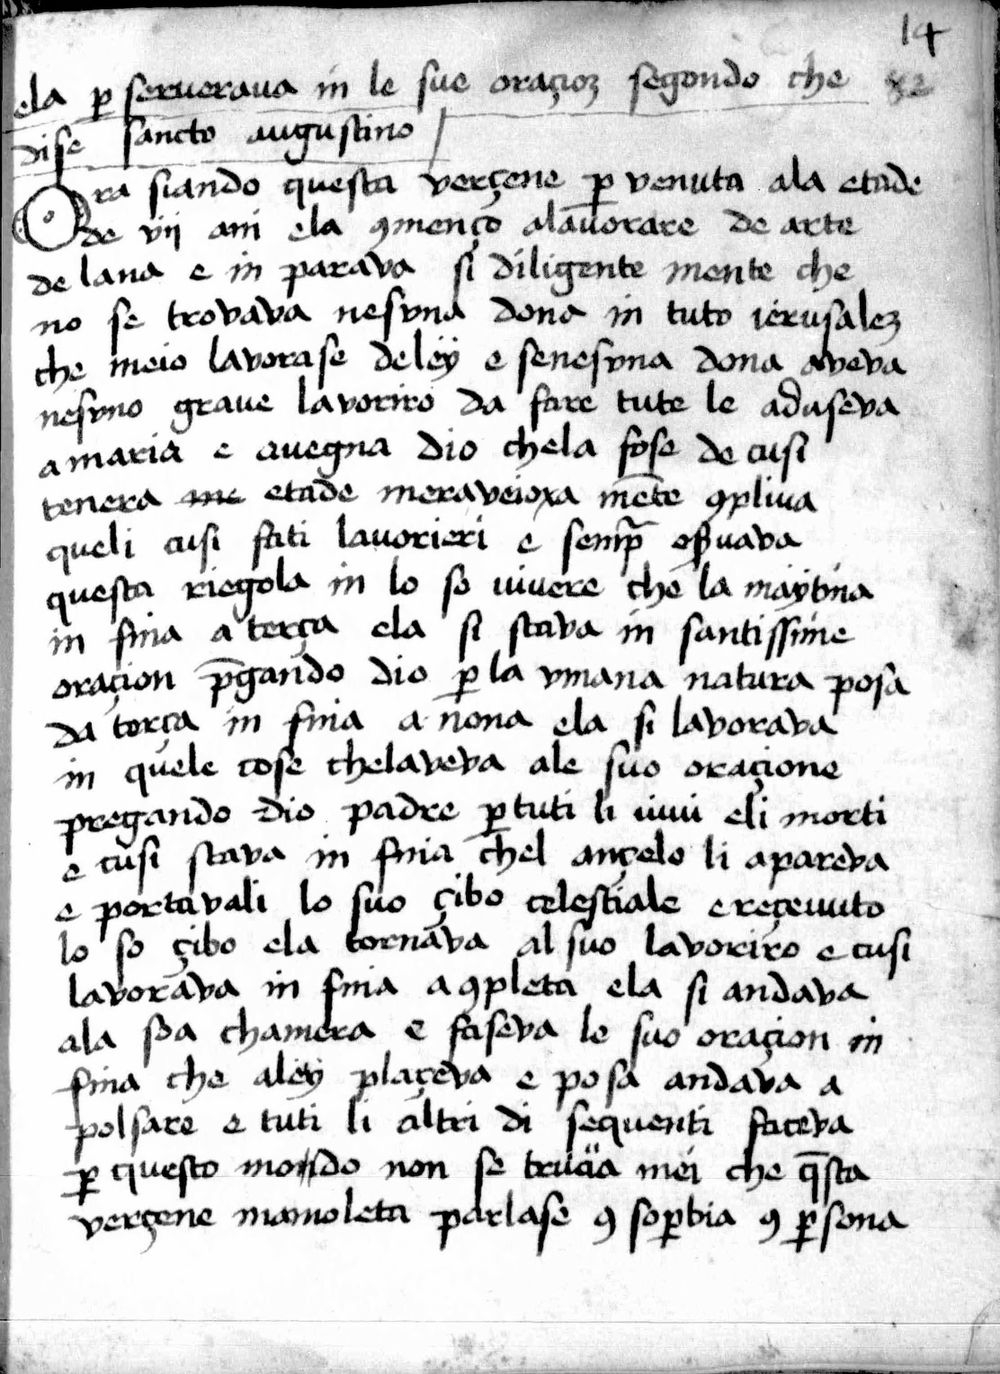 14
ela ꝑ seruerava in le sue oraçioꝫ segondo che
dise sancto augustino
Ora siando questa verçene ꝑ venuta ala etade
de vij ani ela ꝯmenço alauorare de arte
de lana e in parava si diligente mente che
no se trovava nesvna dona in tuto ierusaleꝫ
che meio lavorase de leÿ e senesvna dona aveva
nesvno graue lavoriro da fare tute le aduseva
a maria e auegna dio chela fose de cusi
tenera etade meraveioxa mēte ꝯpliua
queli cusi fati lauorieri e semp̄ osꝑvava
questa riegola in lo so uiuere che la maÿtina
in fina a terça ela si stava in santissime
oraçion p̄gando dio ꝑ la vmana natura posa
da terça in fina a nona ela si lavorava
in quele cose chelaveva ale suo oraçione
pregando dio padre ꝑ tuti li uiui eli morti
e cusi stava in fina chel ançelo li apareva
e portavali lo suo çibo celestiale e reçeuuto
lo so çibo ela tornava al suo lavoriro e cusi
lavorava in fina a ꝯpleta ela si andava
ala soa chamera e faseva le suo oraçion in
fina che aleÿ plaçeva e posa andava a
polsare e tuti li altri di sequenti faceva
ꝑ questo mondo non se truua mei che q̄sta
verçene mamoleta parlase ꝯ soꝑbia ꝯ ꝑsona